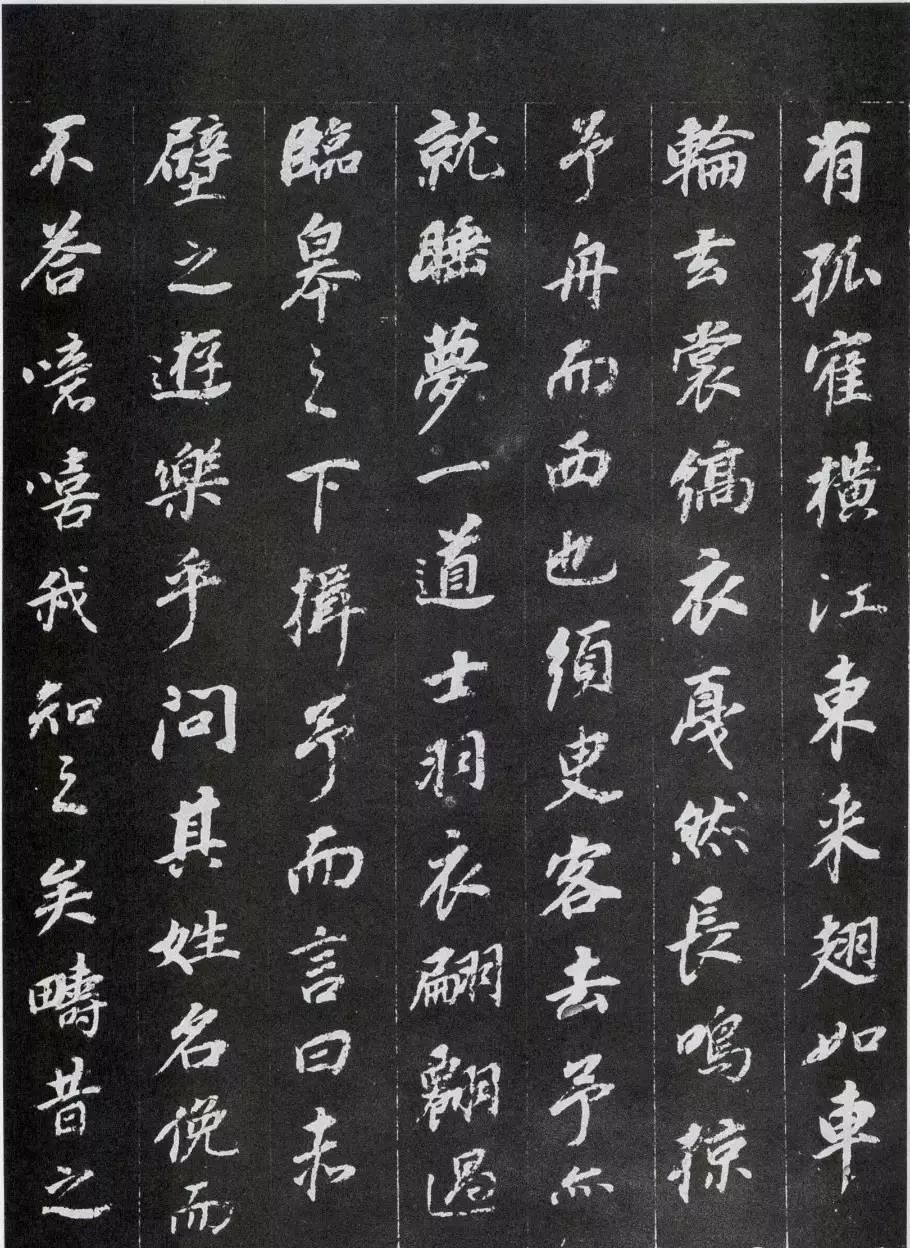 有孤寉橫江東来翅如車
輪玄裳縞衣戛然長鳴掠
予舟而西也須臾客去予亦
就睡夢一道士羽衣翩翩過
臨皋之下揖予而言曰赤
壁之遊樂乎問其姓名俛而
不答嗚嘻我知之矣疇昔之